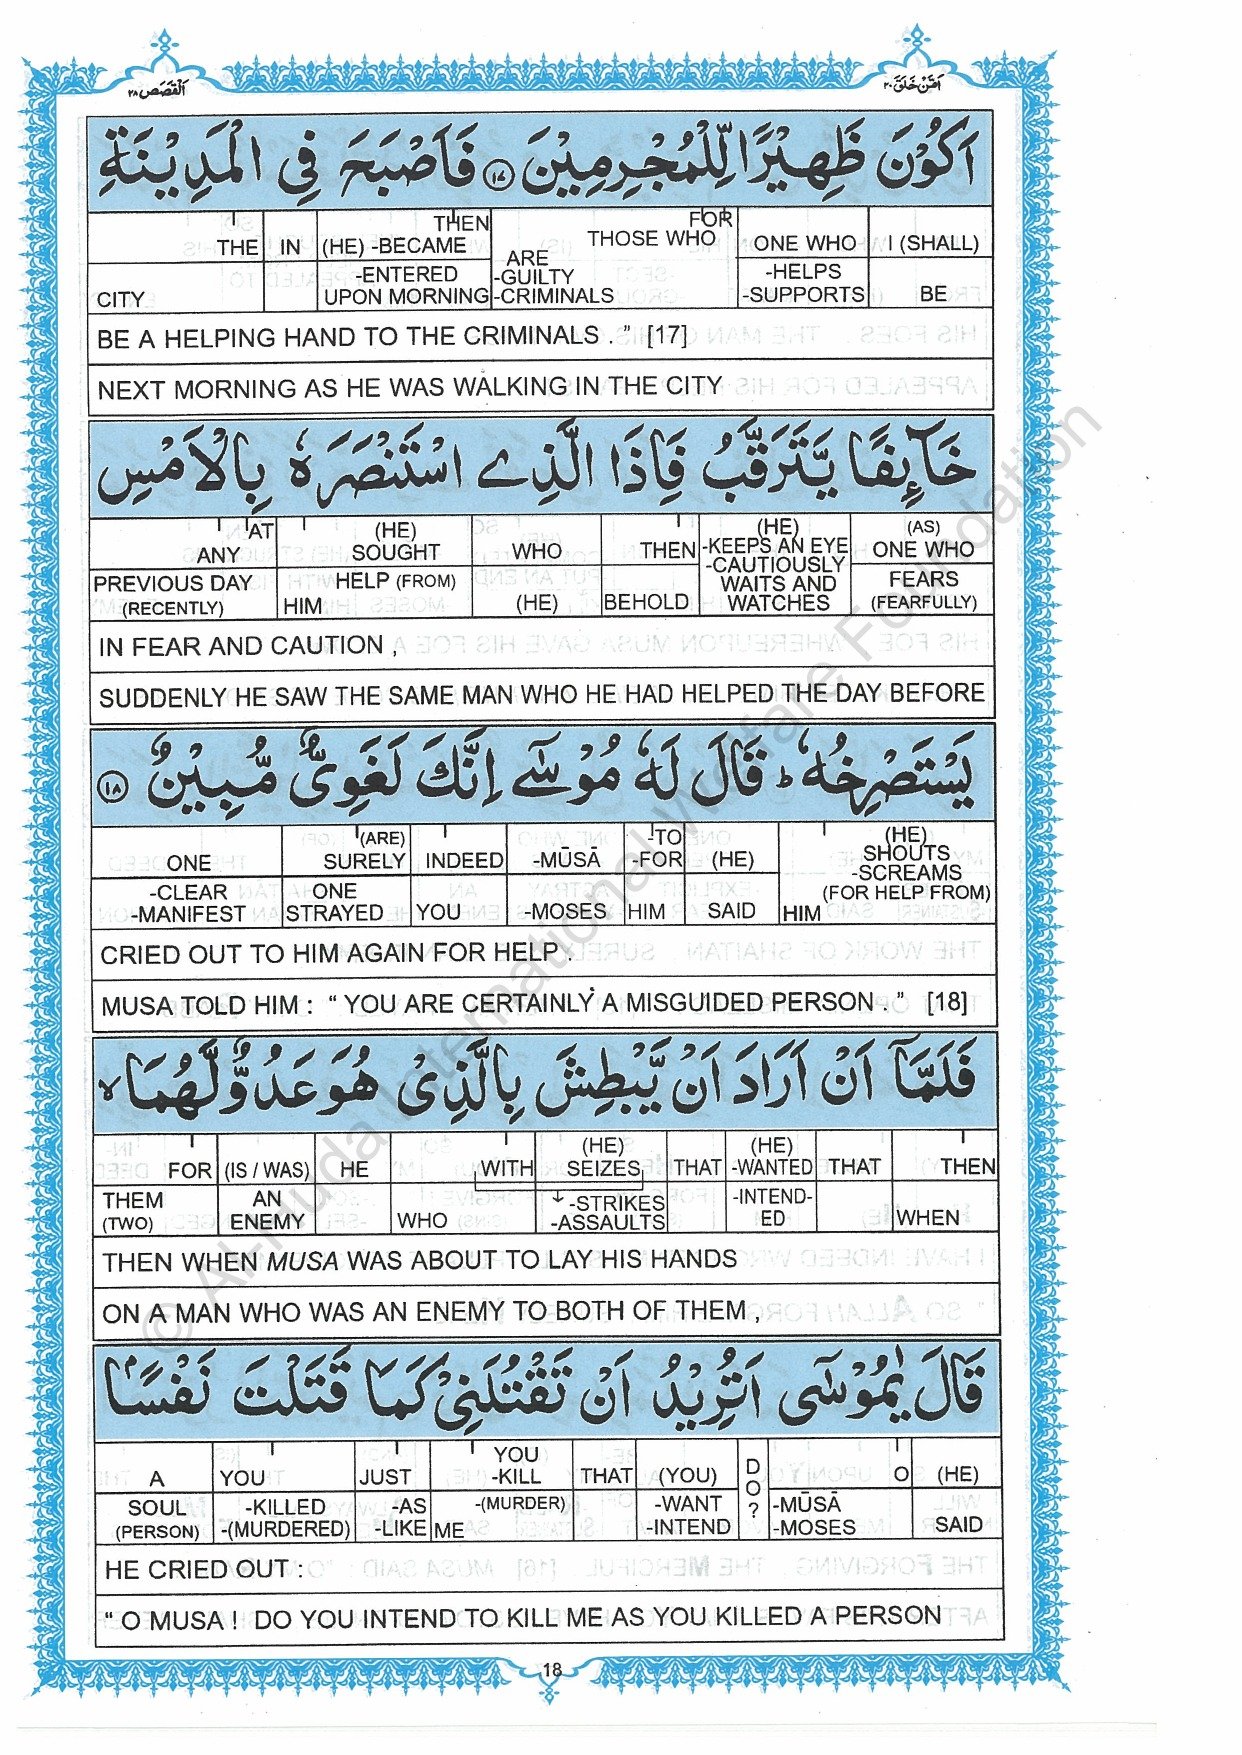 القصص ۲۸
امن خلق ۲۰
اَكُوْنَ ظَهِيْرًا لِّلْمُجْرِمِيْنَ ۱۷ فَاَصْبَحَ فِي الْمَدِيْنَةِ
THE IN (HE) -BECAME THEN ARE THOSE WHO FOR ONE WHO I (SHALL)
CITY -ENTERED UPON MORNING -GUILTY -CRIMINALS -HELPS -SUPPORTS BE
BE A HELPING HAND TO THE CRIMINALS . ” [17]
NEXT MORNING AS HE WAS WALKING IN THE CITY
خَآئِفًا يَّتَرَقَّبُ فَاِذَا الَّذِي اسْتَنْصَرَهٗ بِالْاَمْسِ
AT ANY (HE) SOUGHT WHO THEN (HE) -KEEPS AN EYE -CAUTIOUSLY (AS) ONE WHO
PREVIOUS DAY (RECENTLY) HIM HELP (FROM) (HE) BEHOLD WAITS AND WATCHES FEARS (FEARFULLY)
IN FEAR AND CAUTION ,
SUDDENLY HE SAW THE SAME MAN WHO HE HAD HELPED THE DAY BEFORE
يَسْتَصْرِخُهٗ ؕ قَالَ لَهٗ مُوْسٰٓى اِنَّكَ لَغَوِيٌّ مُّبِيْنٌ ۱۸
ONE (ARE) SURELY INDEED -MŪSĀ -TO -FOR (HE) (HE) SHOUTS -SCREAMS
-CLEAR -MANIFEST ONE STRAYED YOU -MOSES HIM SAID HIM (FOR HELP FROM)
CRIED OUT TO HIM AGAIN FOR HELP .
MUSA TOLD HIM : “ YOU ARE CERTAINLY A MISGUIDED PERSON . ” [18]
فَلَمَّآ اَنْ اَرَادَ اَنْ يَّبْطِشَ بِالَّذِيْ هُوَ عَدُوٌّ لَّهُمَا ۙ
FOR (IS / WAS) HE WITH (HE) SEIZES THAT (HE) -WANTED THAT THEN
THEM (TWO) AN ENEMY WHO -STRIKES -ASSAULTS -INTEND- ED WHEN
THEN WHEN MUSA WAS ABOUT TO LAY HIS HANDS
ON A MAN WHO WAS AN ENEMY TO BOTH OF THEM ,
قَالَ يٰمُوْسٰٓى اَتُرِيْدُ اَنْ تَقْتُلَنِيْ كَمَا قَتَلْتَ نَفْسًاۢ
A YOU JUST YOU -KILL THAT (YOU) DO? O (HE)
SOUL (PERSON) -KILLED -(MURDERED) -AS -LIKE ME -(MURDER) -WANT -INTEND -MŪSĀ -MOSES SAID
HE CRIED OUT :
“ O MUSA ! DO YOU INTEND TO KILL ME AS YOU KILLED A PERSON
18
© Al-Huda International Welfare Foundation